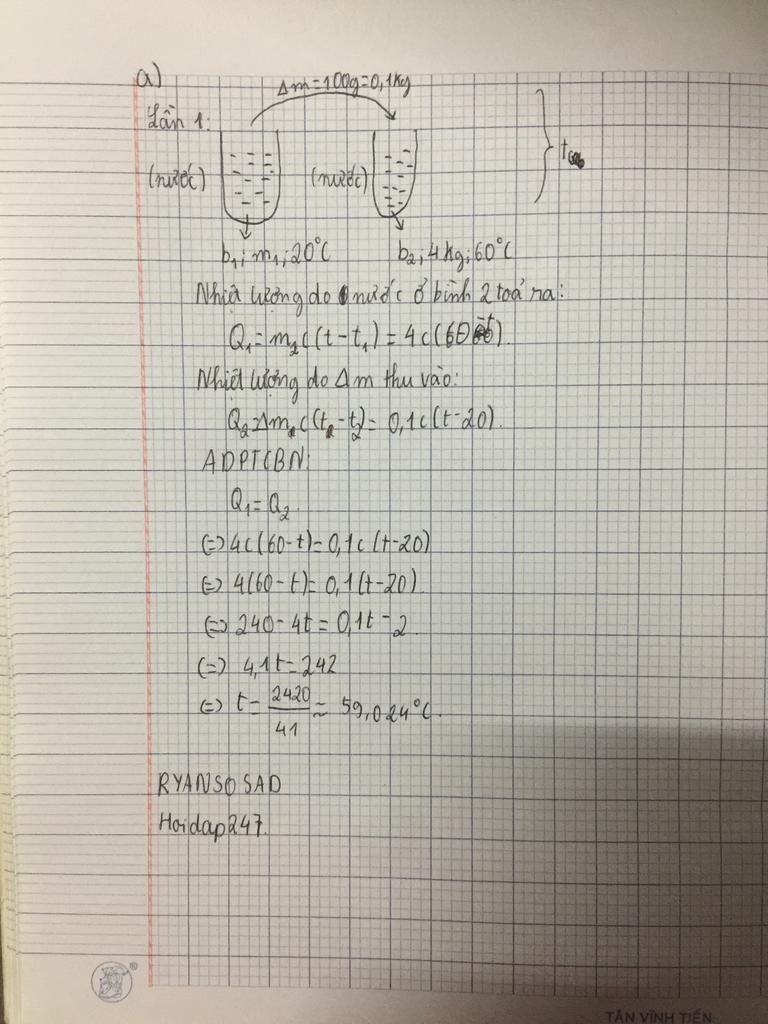 a)
Δm=100g=0,1Kg
Lần 1:
(nước) (nước)
b₁; m₁; 20°C b₂; 4Kg; 60°C
Nhiệt lượng do nước ở bình 2 toả ra:
Q₁= m₂c(t-t₁) = 4c(60-t).
Nhiệt lượng do Δm thu vào:
Q₂=Δm c(t-t₂)= 0,1c(t-20).
ADPTCBN:
Q₁= Q₂
(=) 4c(60-t)=0,1c(t-20)
(=) 4(60-t)= 0,1(t-20)
(=) 240-4t=0,1t-2.
(=) 4,1t=242
(=) t= 2420/41 ≈ 59,024°C.
RYANSOSAD
Hoidap247.
TÂN VĨNH TIẾN